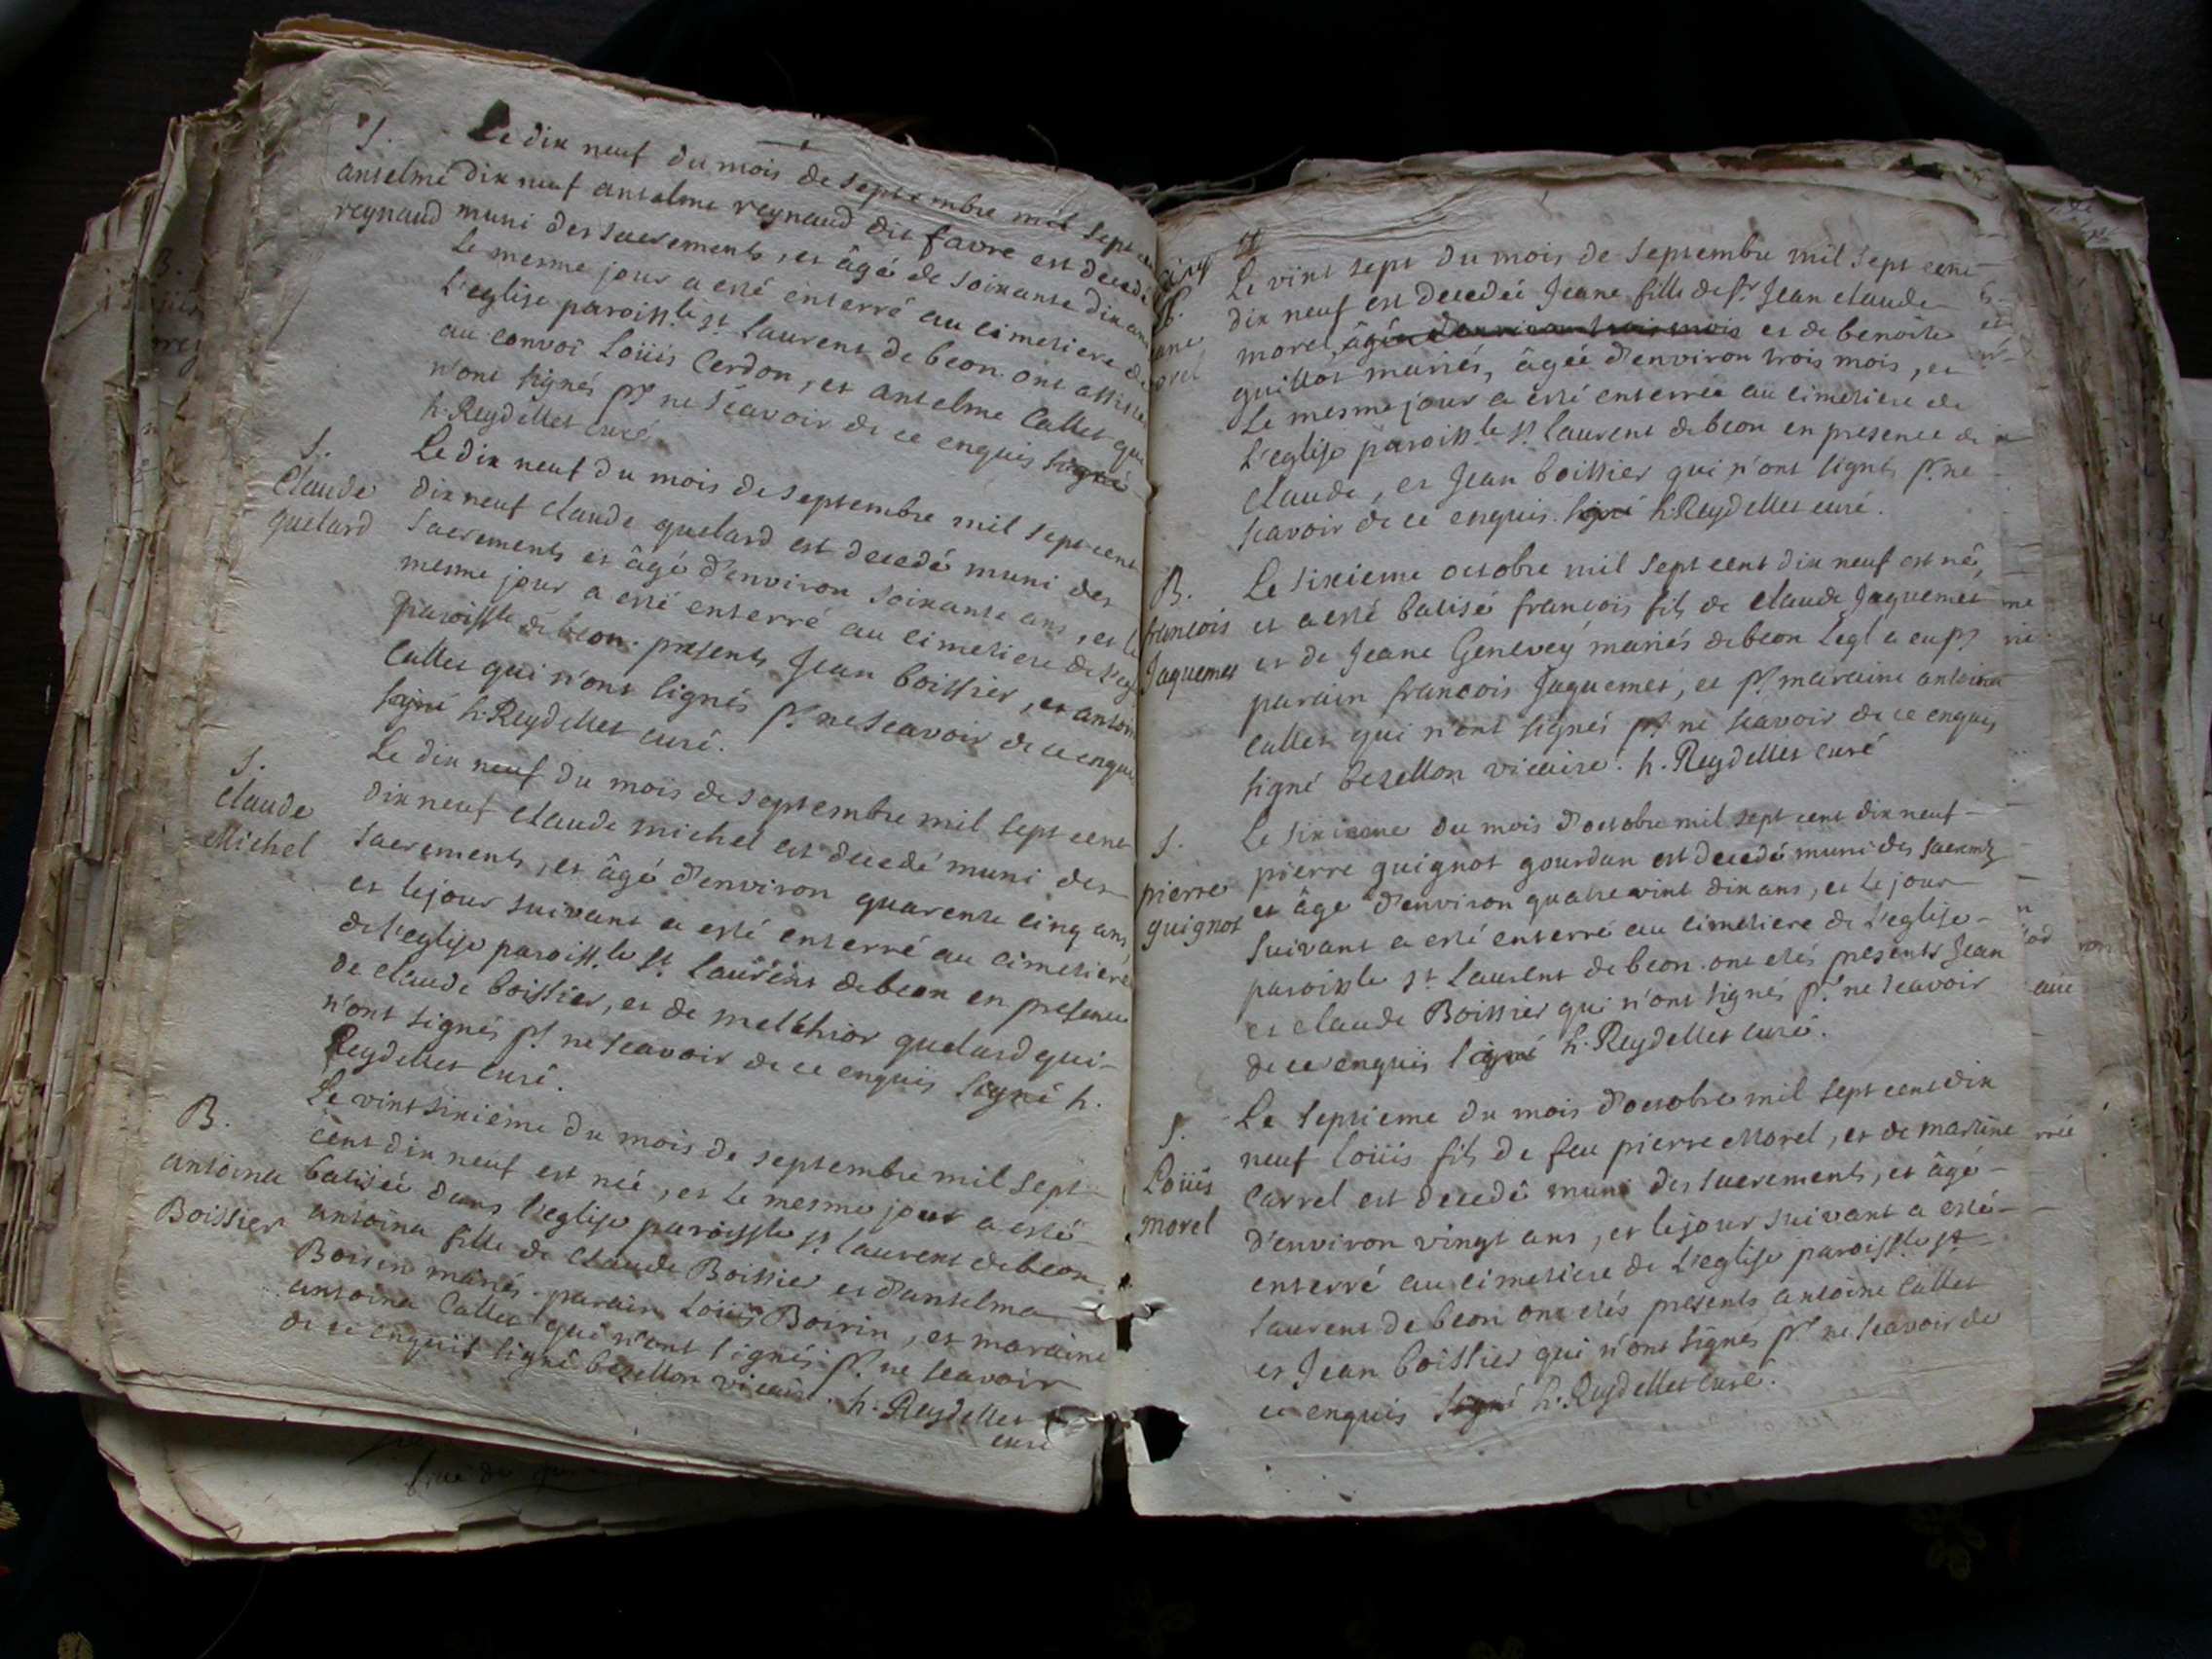 S.
anselme
reynaud
Le dix neuf du mois de septembre mil sept
dix neuf anselme reynaud dit favre est decedé
muni des sacrements, et âgé de soixante dix ans
Le mesme jour a esté enterré au cimetiere de
L'eglise paroiss.le st Laurent de beon. ont assisté
au convoi Loüis Cerdon, et anselme Callet qui
n'ont signés pr ne sçavoir de ce enquis signé
h. Reydellet curé
S.
Claude
quelard
Le dix neuf du mois de septembre mil sept cent
dix neuf claude quelard est decedé muni des
sacrements et âgé d'environ soixante ans, et le
mesme jour a esté enterré au cimetiere de l'egl
paroissle de beon. presents Jean boissier, et antoine
Callet qui n'ont signés pr ne scavoir de ce enquis
signé h. Reydellet curé.
S.
Claude
Michel
Le dix neuf du mois de septembre mil sept cent
dix neuf claude michel est decedé muni des
sacrements, et âgé d'environ quarente cinq ans,
et le jour suivant a esté enterré au cimetiere
de l'eglise paroiss.le st Laurent de beon en presence
de claude boissier, et de melchior quelard qui
n'ont signés pr ne scavoir de ce enquis signé h.
Reydellet curé.
B.
antoina
Boissier
Le vint sixieme du mois de septembre mil sept
cent dix neuf est née, et le mesme jour a esté
batisée dans l'eglise paroissle st laurent de beon
antoina fille de Claude Boissier et d'anselma
Boirin mariés. parain Loüis Boirin, et maraine
antoina Callet qui n'ont signés pr ne scavoir
de ce enquis signé bezellon vicaire. h. Reydellet
curé
S.
Le vint sept du mois de septembre mil sept cent
dix neuf est decedée Jeane fille de sr Jean claude
morel, âgée d'environ trois mois et de benoite
guillot mariés, âgée d'environ trois mois, et
Le mesme jour a esté enterrée au cimetiere de
L'eglise paroiss.le st laurent de beon en presence de
claude, et Jean boissier qui n'ont signés pr ne
scavoir de ce enquis. signé h. Reydellet curé.
B.
francois
Jaquemet
Le sixieme octobre mil sept cent dix neuf est né,
et a esté batisé francois fils de claude Jaquemet
et de Jeane Genevey mariés de beon Legl a eu pr
parain francois Jaquemet, et pr maraine antoina
Callet qui n'ont signés pr ne scavoir de ce enquis
signé bezellon vicaire. h. Reydellet curé
S.
pierre
guignot
Le sixieme du mois d'octobre mil sept cent dix neuf
pierre guignot gourdan est decedé muni des sacremts
et âgé d'environ quatre vint dix ans, et le jour
suivant a esté enterré au cimetiere de L'eglise
paroissle st Laurent de beon. ont etés presents Jean
et claude Boissier qui n'ont signés pr ne scavoir
de ce enquis signé h. Reydellet curé.
S.
Loüis
morel
Le septieme du mois d'octobre mil sept cent dix
neuf loüis fils de feu pierre Morel, et de martine
Carrel est decedé muni des sacrements, et âgé
d'environ vingt ans, et le jour suivant a esté
enterré au cimetiere de L'eglise paroissle st
laurent de beon ont etés presents antoine Callet
et Jean boissier qui n'ont signés pr ne scavoir de
ce enquis signé h. Reydellet curé.